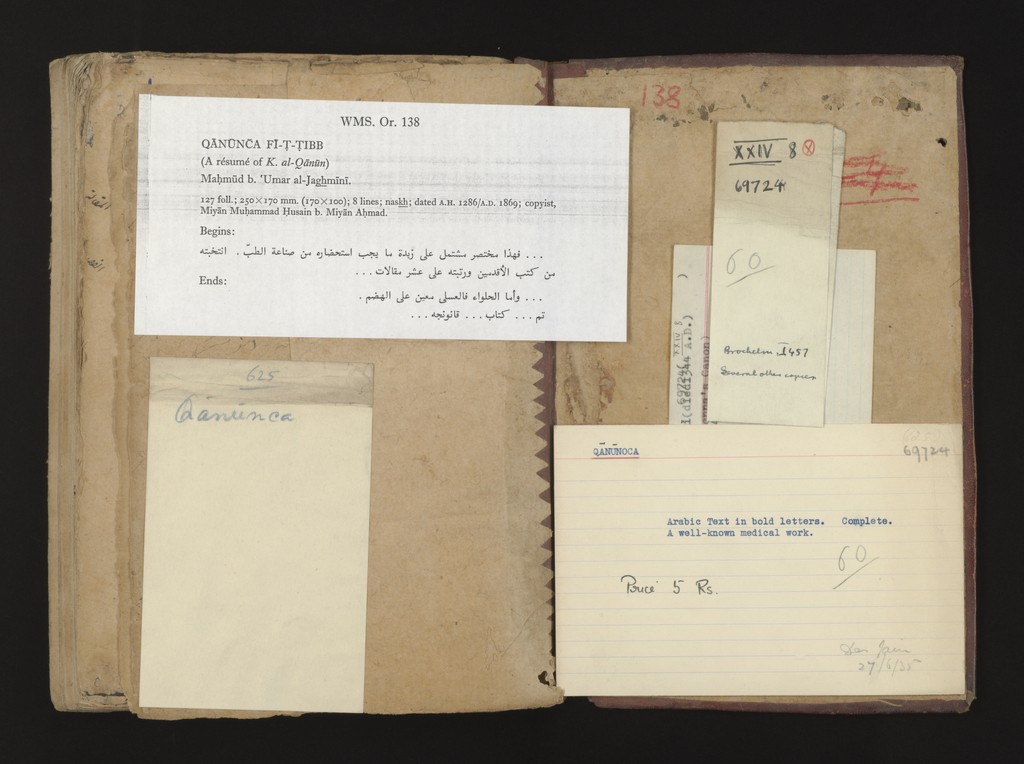 WMS. Or. 138
QĀNŪNČA FĪ-Ṭ-ṬIBB
(A résumé of K. al-Qānūn)
Maḥmūd b. ʿUmar al-Jaghmīnī.
127 foll.; 250×170 mm. (170×100); 8 lines; naskh; dated A.H. 1286/A.D. 1869; copyist,
Miyān Muḥammad Ḥusain b. Miyān Aḥmad.
Begins:
... فهذا مختصر مشتمل على زُبدة ما يجب استحضاره من صناعة الطبّ . انتخبته
من كتب الأقدمين ورتبته على عشر مقالات...
Ends:
... وأما الحلواء فالعسلى معين على الهضم .
تم ... كتاب ... قانونجه ...
625
Qānūnca
138
XXIV 8
69724
60
Brockelm. I 457
Several other copies
XXIV 8
69724
QĀNŪNOCA
69724
Arabic Text in bold letters. Complete.
A well-known medical work.
60
Price 5 Rs.
27/6/35